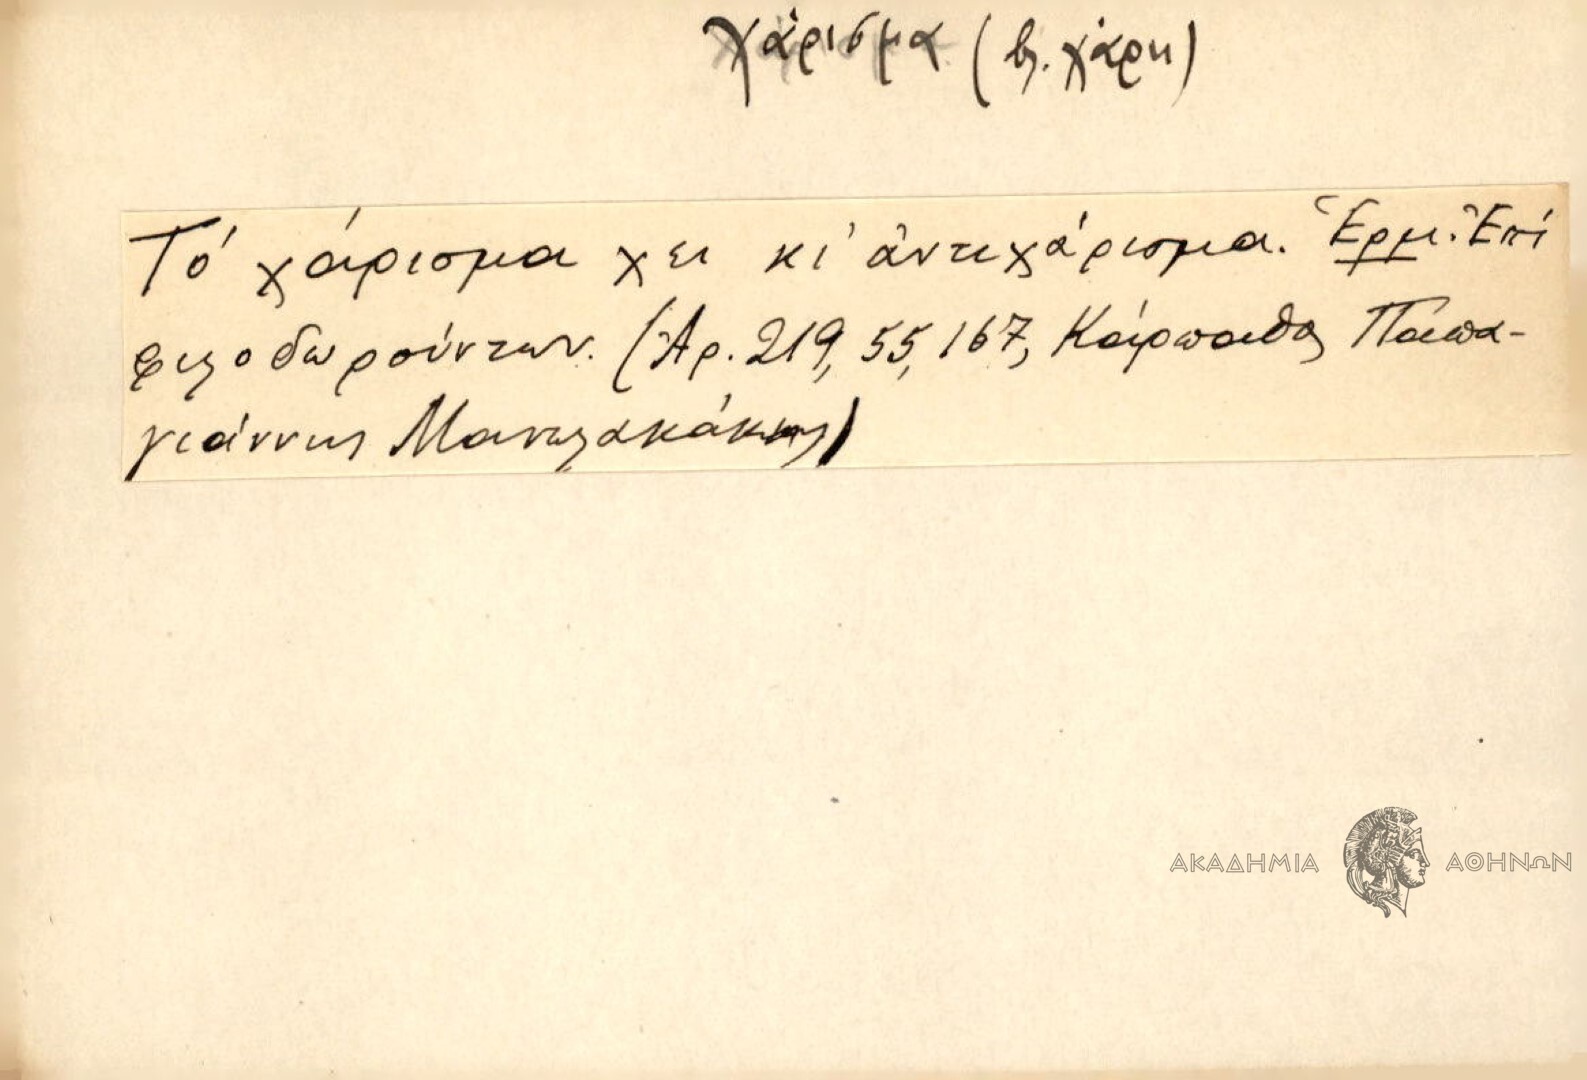 χάρισμα (βλ. χάρη)
Τό χάρισμα χει κι' ἀντιχάρισμα. Ἑρμ. Ἐπί
φιλοδωρούντων. (Ἀρ. 219, 55, 167, Κάρπαθος Παπα-
γιάννης Μανωλακάκης)
ΑΚΑΔΗΜΙΑ ΑΘΗΝΩΝ